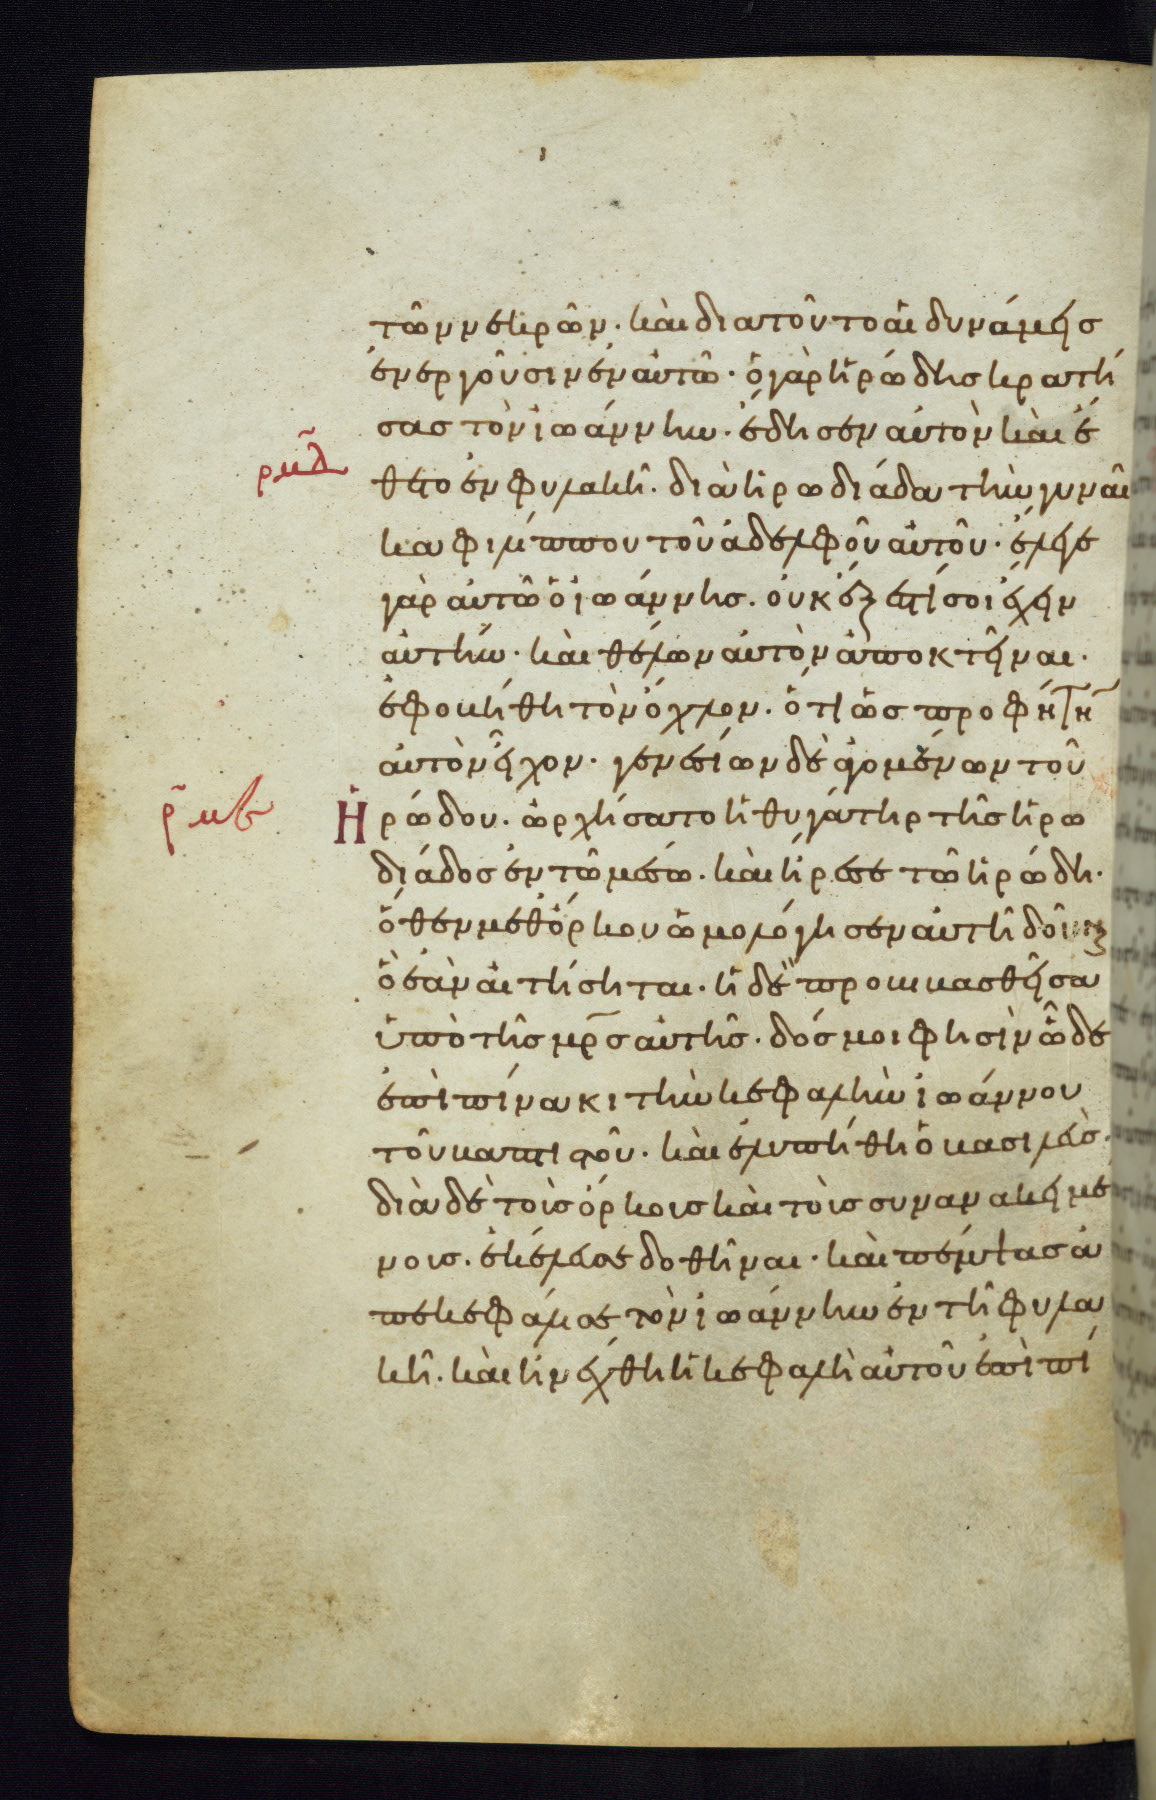 τῶν νεκρῶν. καὶ διατοῦτο αἱ δυνάμεις
ἐνεργοῦσιν ἐν αὐτῶ. ὁ γὰρ ἡρώδης κρατή
σας τὸν ἰωάννην. ἔδησεν αὐτὸν καὶ ἔ
ρμα
θετο ἐν φυλακῆ. διὰ ἡρωδιάδα τὴν γυναῖ
κα φιλίππου τοῦ ἀδελφοῦ αὐτοῦ. ἔλεγε
γὰρ αὐτῶ ὁ ἰωάννης. οὐκ ἔξεστί σοι ἔχειν
αὐτήν. καὶ θέλων αὐτὸν ἀποκτεῖναι.
ἐφοβήθη τὸν ὄχλον. ὅτι ὡς προφήτην
αὐτὸν εἶχον. γενεσίων δὲ ἀγομένων τοῦ
ρμβ
Ἡρώδου. ὠρχήσατο ἡ θυγάτηρ τῆς ἡρω
διάδος ἐν τῶ μέσω. καὶ ἤρεσε τῶ ἡρώδη.
ὅθεν μεθ ὅρκου ὡμολόγησεν αὐτῆ δοῦναι
ὃ ἐὰν αἰτήσηται. ἡ δὲ προβιβασθεῖσα
ὑπὸ τῆς μρς αὐτῆς. δός μοι φησὶν ὧδε
ἐπὶ πίνακι τὴν κεφαλὴν ἰωάννου
τοῦ βαπτιστοῦ. καὶ ἐλυπήθη ὁ βασιλεὺς.
διὰ δὲ τοὺς ὅρκους καὶ τοὺς συνανακειμέ
νους. ἐκέλευσε δοθῆναι. καὶ πέμψας ἀ
πεκεφάλισε τὸν ἰωάννην ἐν τῆ φυλα
κῆ. καὶ ἠνέχθη ἡ κεφαλὴ αὐτοῦ ἐπὶ πί